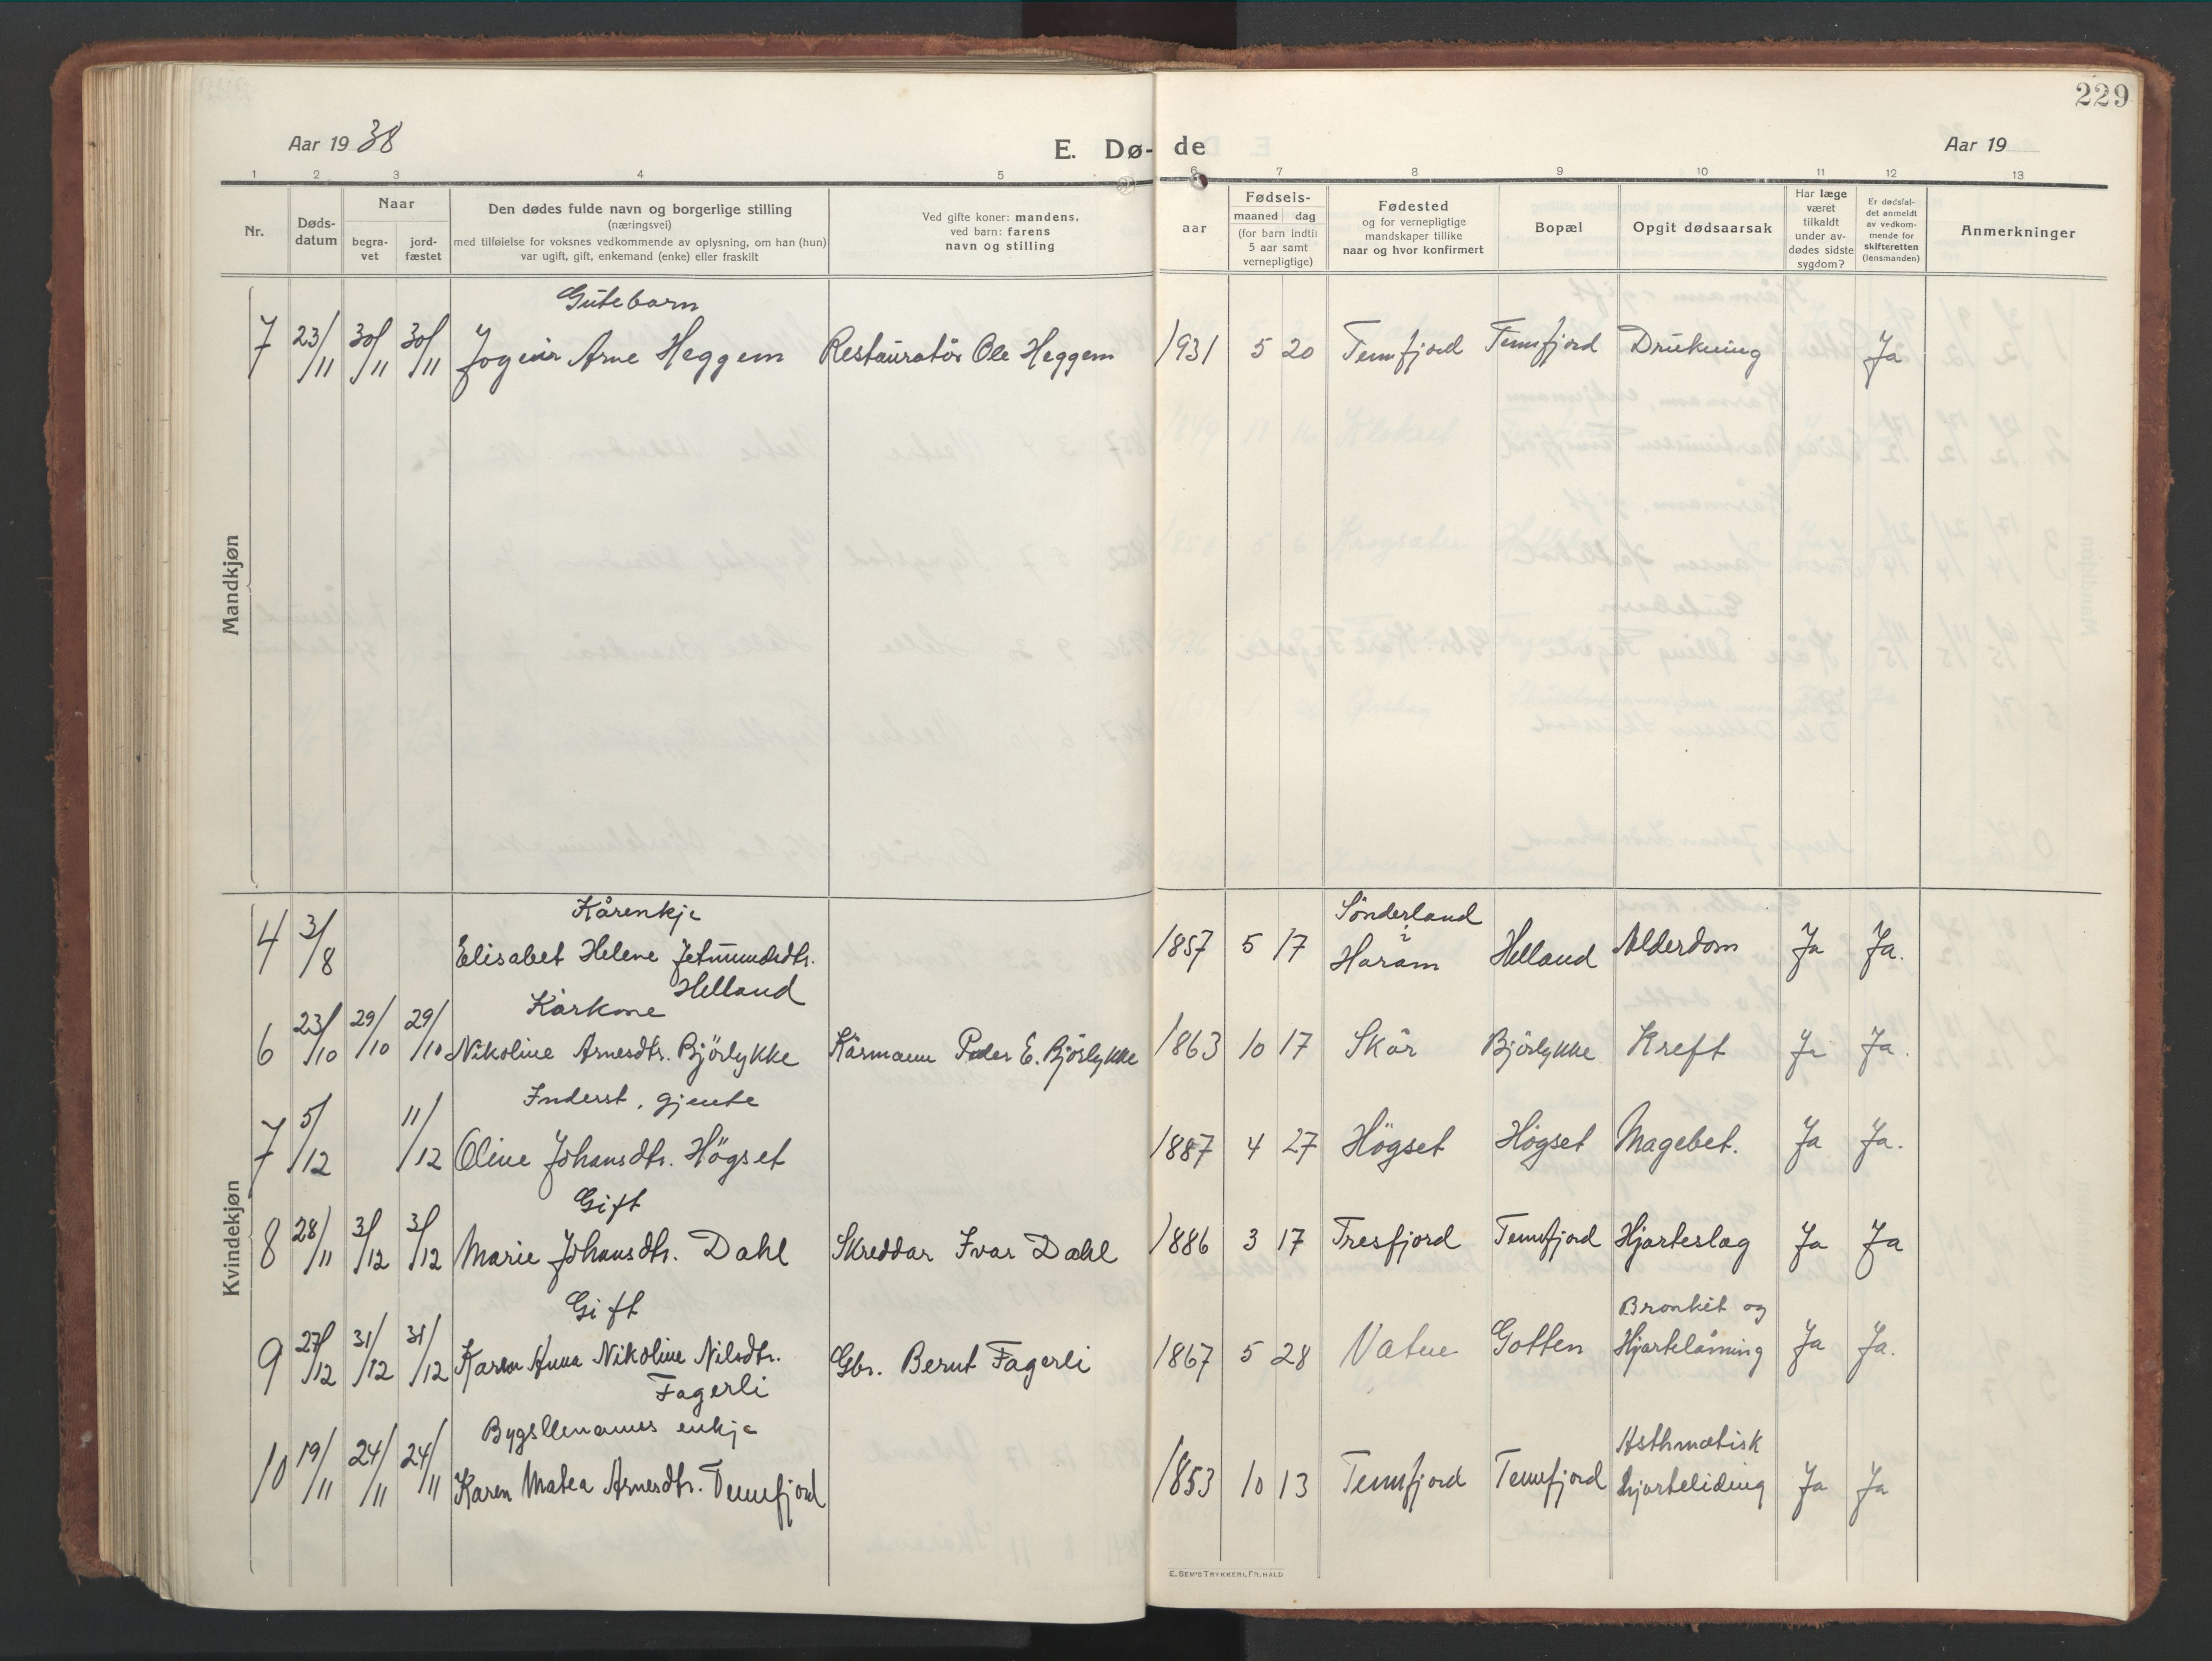 229
Aar 1938
E. Dø-de
Aar 19
1 2 3 4 5 6 7 8 9 10 11 12 13
Nr.
Døds-datum
Naar
begra-vet
jord-fæstet
Den dødes fulde navn og borgerlige stilling
(næringsvei)
med tilføielse for voksnes vedkommende av oplysning, om han (hun)
var ugift, gift, enkemand (enke) eller fraskilt
Ved gifte koner: mandens,
ved barn: farens
navn og stilling
Fødsels-
aar
maaned dag
(for barn indtil
5 aar samt
vernepligtige)
Fødested
og for vernepligtige
mandskaper tillike
naar og hvor konfirmert
Bopæl
Opgit dødsaarsak
Har læge
været
tilkaldt
under av-
dødes sidste
sygdom?
Er dødsfal-
det anmeldt
av vedkom-
mende for
skifteretten
(lensmanden)
Anmerkninger
Mandkjøn
Gutebarn
7 23/11 30/11 30/11 Jogeir Arne Heggem Restauratör Ole Heggem 1931 5 20 Tennfjord Tennfjord Drukning Ja
Kvindekjøn
Kårenkje Sönderland
4 3/8 Elisabet Helene Jetmundsdtr. 1857 5 17 i Haram Helland Alderdom Ja Ja.
Helland
Kårkone
6 23/10 29/10 29/10 Nikoline Arnesdtr. Björlykke Kårmann Peder E. Björlykke 1863 10 17 Skår Björlykke Kreft Ja Ja.
Inderst, gjente
7 5/12 11/12 Oline Johansdtr. Högset 1887 4 27 Högset Högset Magebet. Ja Ja.
Gift
8 28/11 3/12 3/12 Marie Johansdtr. Dahl Skreddar Ivar Dahl 1886 3 17 Tresfjord Tennfjord Hjarteslag Ja Ja
Gift Bronkit og
9 27/12 31/12 31/12 Karen Anna Nikoline Nilsdtr. Gbr. Bernt Fagerli 1867 5 28 Vatne Gotten Hjartelåming Ja Ja.
Fagerli
Bygslemanns enkje Asthmatisk
10 19/11 24/11 24/11 Karen Matea Arnesdtr. Tennfjord 1853 10 13 Tennfjord Tennfjord hjarteliding Ja Ja
E. SEM'S TRYKKERI, FR. HALD